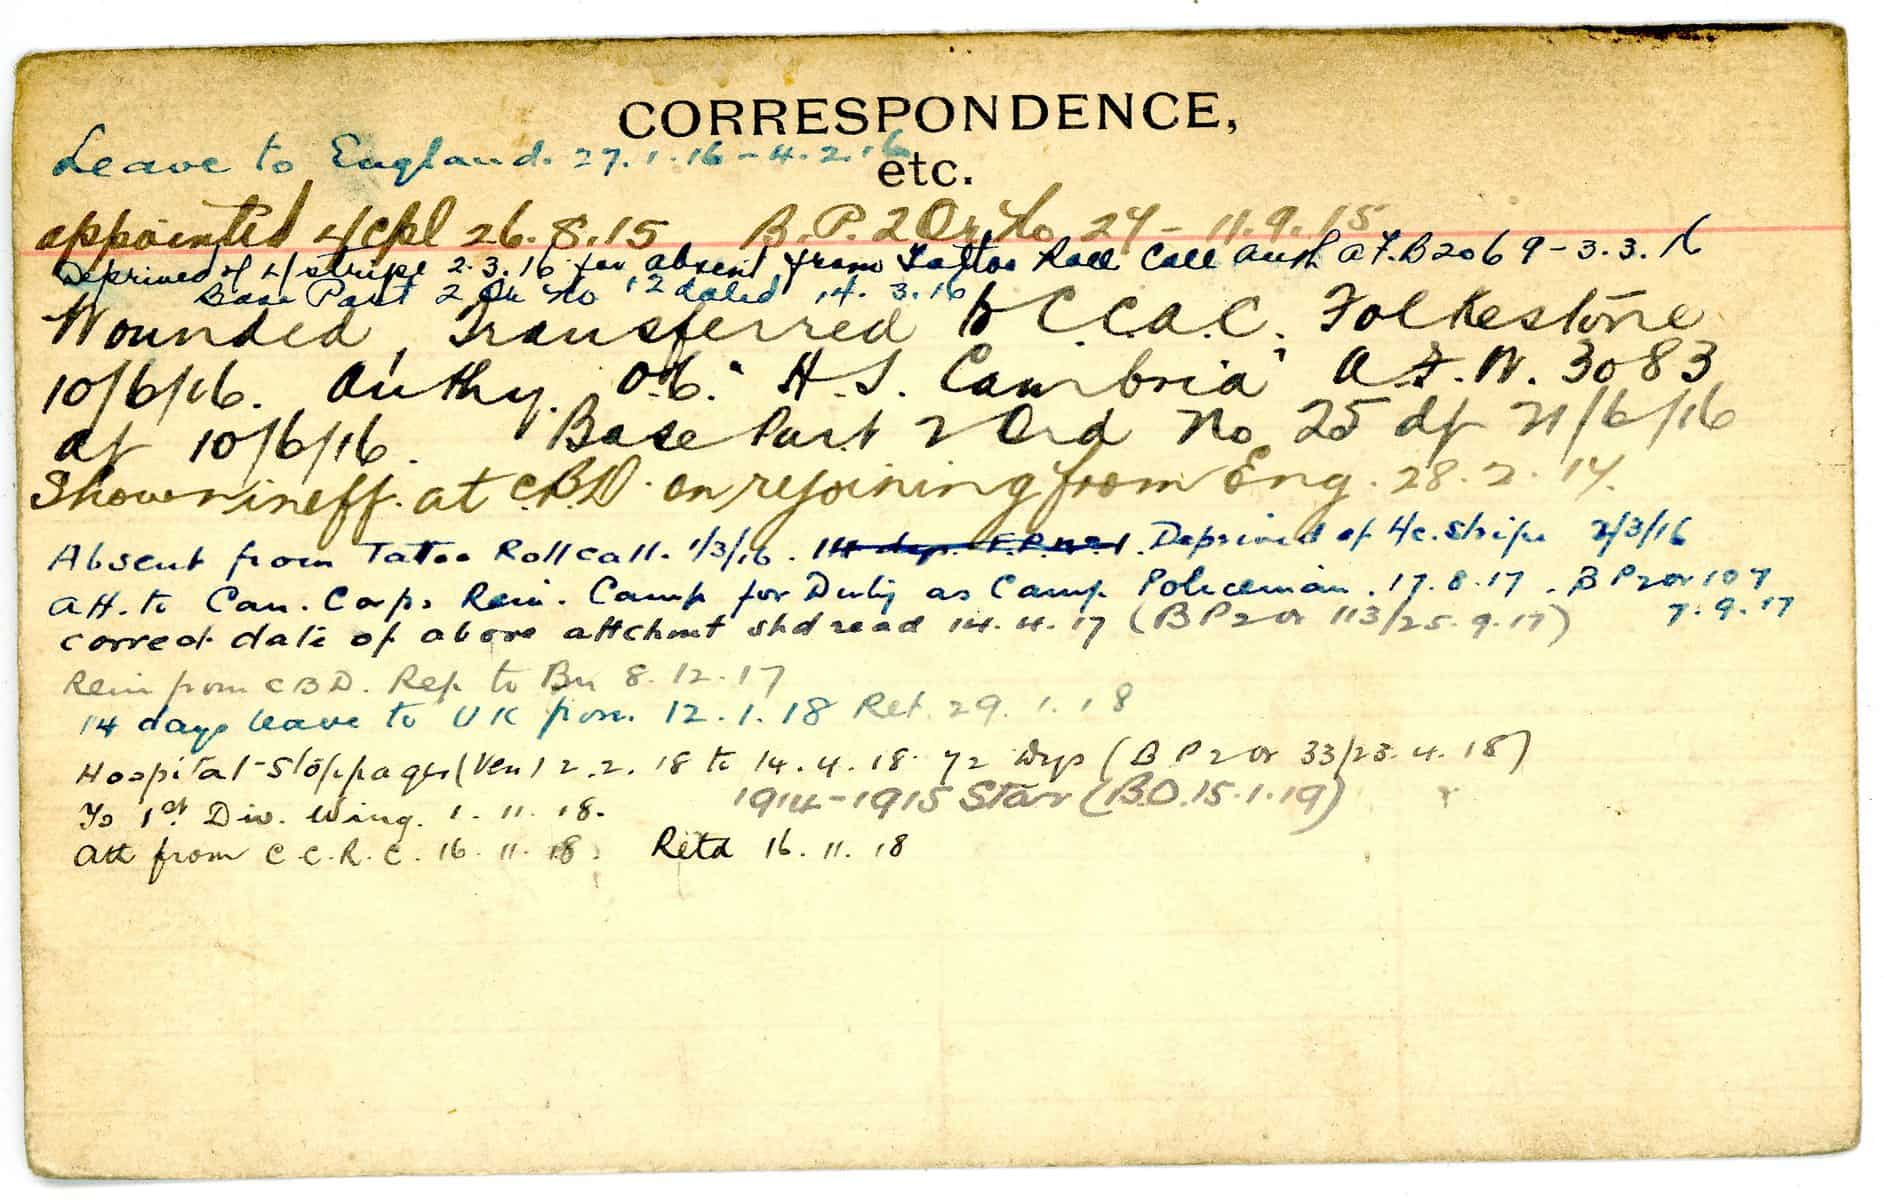 CORRESPONDENCE,
etc.
Leave to England. 27.1.16 - 4.2.16
appointed L/Cpl 26.8.15 B.P.2 Or No 24 - 11.9.15
Deprived of L/stripe 2.3.16 for absent from Tattoo Roll Call Auth A.F.B2069 - 3.3.16
Base Part 2 Or No 12 dated 14.3.16
Wounded, Transferred to C.C.A.C. Folkestone
10/6/16. Authy. O.C. "H.S. Cambria" A.F.W. 3083
df 10/6/16. Base Part 2 Ord No 25 df 21/6/16
Shown ineff. at C.B.D. on rejoining from Eng. 28.2.17.
Absent from Tattoo Roll call. 1/3/16. 14 days F.P. No 1. Deprived of L/c. Stripe 2/3/16
Att. to Can. Corps Rein. Camp for Duty as Camp Policeman. 17.8.17. B P 2 or 107
7.9.17
correct date of above attchmt shd read 14.4.17 (B P 2 or 113/25.9.17)
Rein from C B D. Rep to Bn 8.12.17
14 days leave to UK from 12.1.18 Ret 29.1.18
Hospital Stoppages (Ven) 2.2.18 to 14.4.18 72 Dys (B P 2 or 33/23.4.18)
To 1st Div. Wing. 1.11.18. 1914-1915 Star (B.O.15.1.19)
Att from C.C.R.C. 16.11.18. Retd 16.11.18